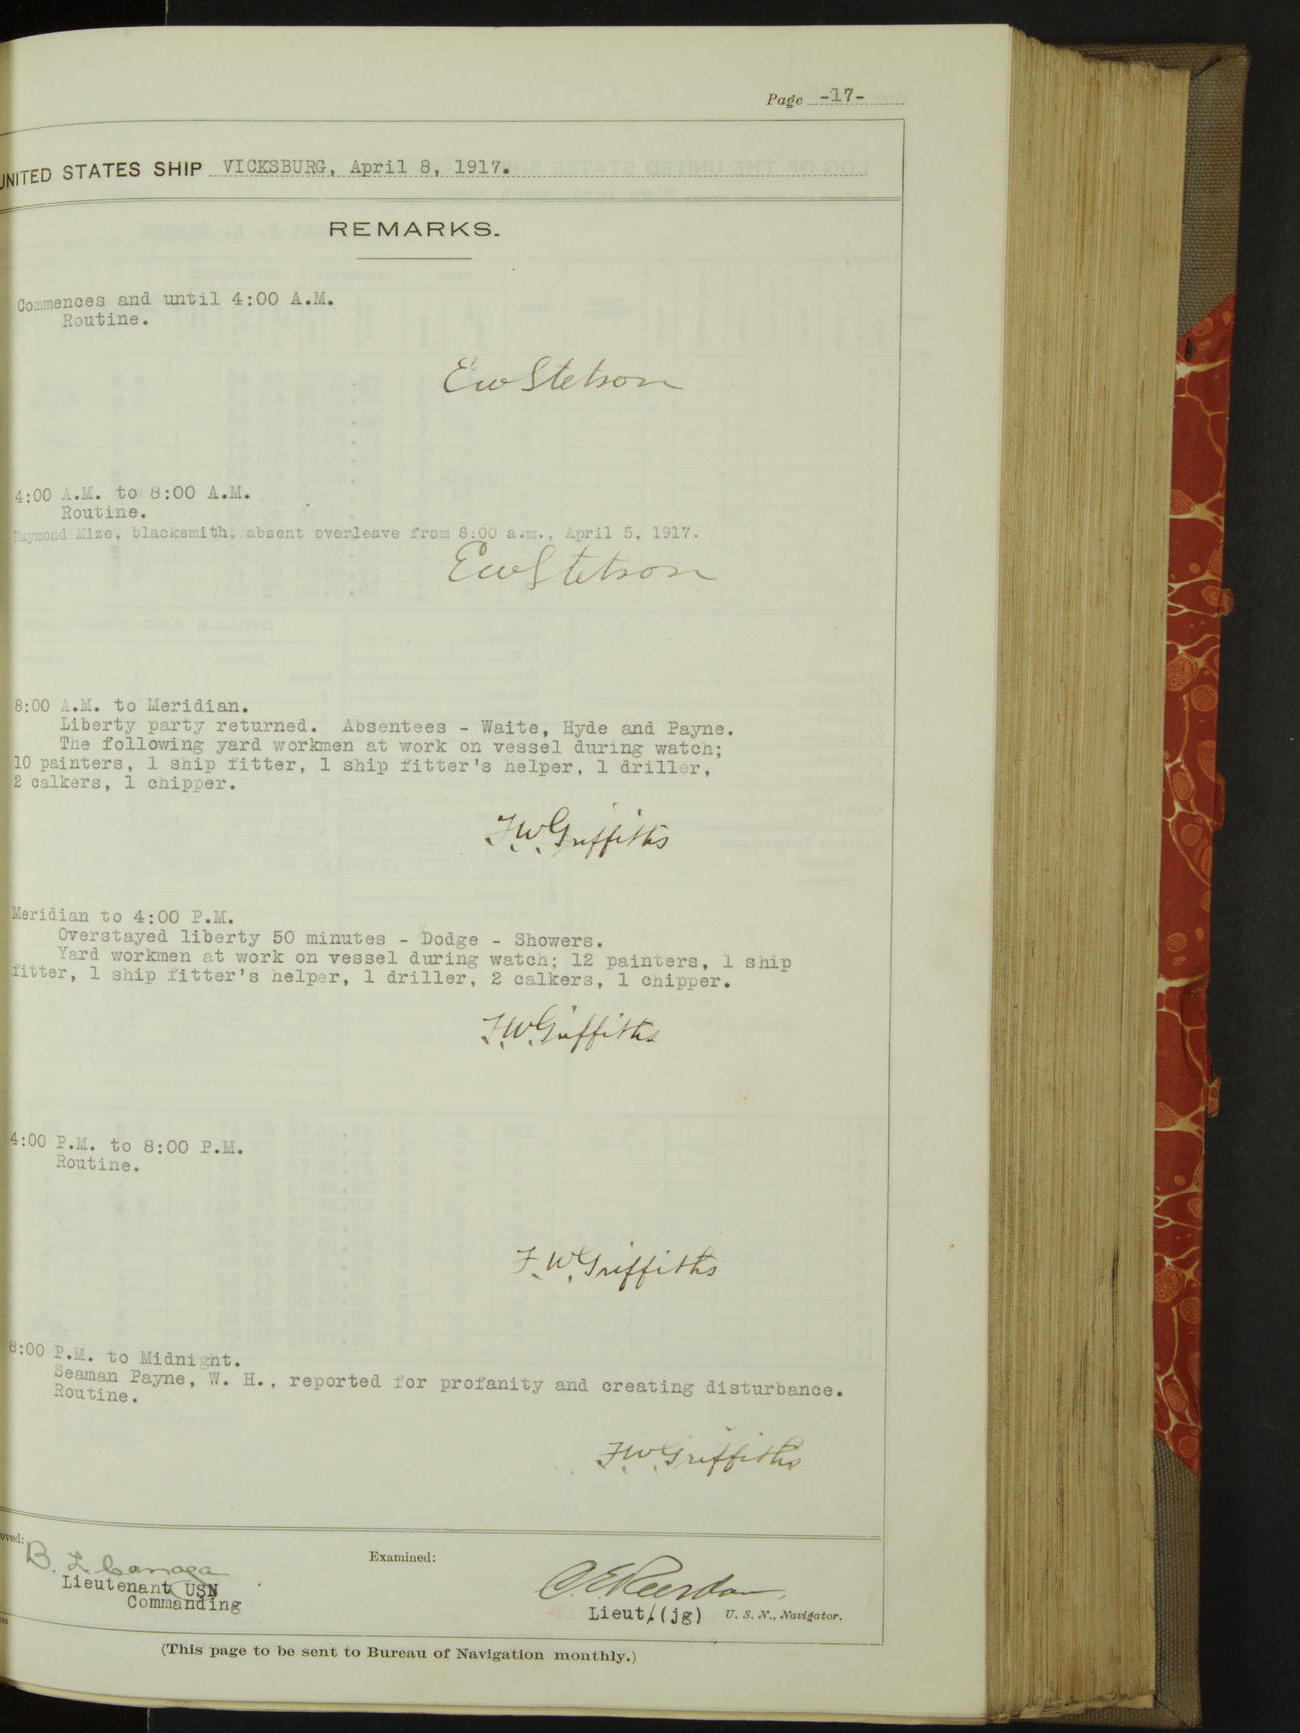 Page -17-
UNITED STATES SHIP VICKSBURG, April 8, 1917.
REMARKS.
Commences and until 4:00 A.M.
Routine.
EwStetson
4:00 A.M. to 8:00 A.M.
Routine.
Raymond Mize, blacksmith, absent overleave from 8:00 a.m., April 5, 1917.
EwStetson
8:00 A.M. to Meridian.
Liberty party returned. Absentees - Waite, Hyde and Payne.
The following yard workmen at work on vessel during watch;
10 painters, 1 ship fitter, 1 ship fitter's helper, 1 driller,
2 calkers, 1 chipper.
F.W.Griffiths
Meridian to 4:00 P.M.
Overstayed liberty 50 minutes - Dodge - Showers.
Yard workmen at work on vessel during watch; 12 painters, 1 ship
fitter, 1 ship fitter's helper, 1 driller, 2 calkers, 1 chipper.
F.W.Griffiths
4:00 P.M. to 8:00 P.M.
Routine.
F.W.Griffiths
8:00 P.M. to Midnight.
Seaman Payne, W. H., reported for profanity and creating disturbance.
Routine.
F.W.Griffiths
oved:
Examined:
B. L. Canaga
Lieutenant USN
Commanding
Lieut.(jg) U. S. N., Navigator.
(This page to be sent to Bureau of Navigation monthly.)